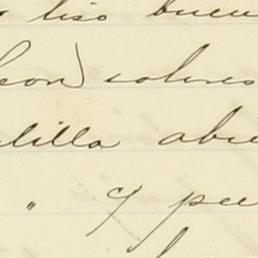 liso buen
con) colores
lilla abi
" y pu